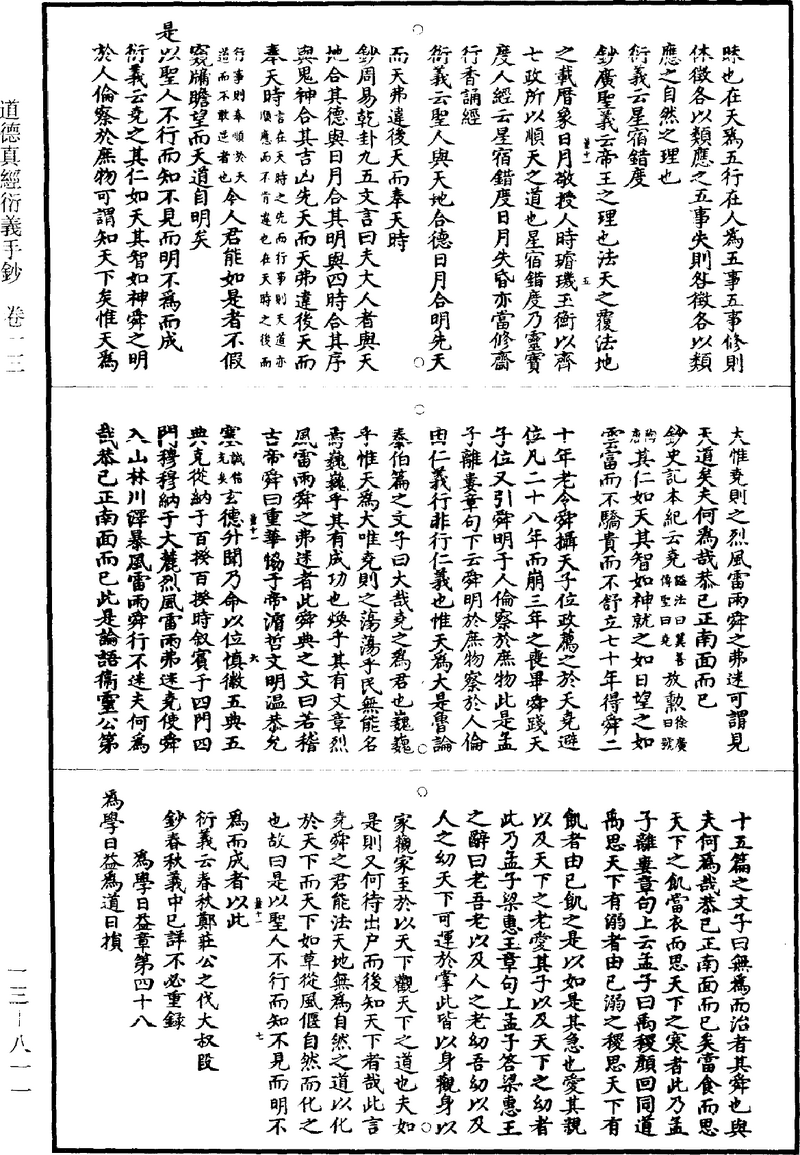 昧也在天爲五行在人爲五事五事修則
休徵各以類應之五事失則咎徵各以類
應之自然之理也
衍義云星宿錯度
鈔廣聖義云帝王之理也法天之覆法地
之載曆象日月敬授人時璿璣玉衡以齊
七政所以順天之道也星宿錯度乃靈寶
度人經云星宿錯度日月失昏亦當修齋
行香誦經
衍義云聖人與天地合德日月合明先天
而天弗違後天而奉天時
鈔周易乾卦九五文言曰夫大人者與天
地合其德與日月合其明與四時合其序
與鬼神合其吉凶先天而天弗違後天而
奉天時言在天時之先而行事則天道亦順應而不肯違也在天時之後而
行事則奉順於天道而不敢逆者也今人君能如是者不假
窺牖瞻望而天道自明矣
是以聖人不行而知不見而明不爲而成
衍義云堯之其仁如天其智如神舜之明
於人倫察於庶物可謂知天下矣惟天爲
大惟堯則之烈風雷雨舜之弗迷可謂見
天道矣夫何爲哉恭己正南面而已
鈔史記本紀云堯諡法曰翼善傳聖曰堯放勳徐廣曰號
陶唐其仁如天其智如神就之如日望之如
雲富而不驕貴而不舒立七十年得舜二
十年老令舜攝天子位政薦之於天堯避
位凡二十八年而崩三年之喪畢舜踐天
子位又引舜明于人倫察於庶物此是孟
子離婁章句下云舜明於庶物察於人倫
由仁義行非行仁義也惟天爲大是魯論
泰伯篇之文子曰大哉堯之爲君也巍巍
乎惟天爲大唯堯則之蕩蕩乎民無能名
焉巍巍乎其有成功也煥乎其有文章烈
風雷雨舜之弗迷者此舜典之文曰若稽
古帝舜曰重華恊于帝濬哲文明温恭允
塞誠信充矣玄德升聞乃命以位慎徽五典五
典克從納于百揆百揆時敘賓于四門四
門穆穆納于大麓烈風雷雨弗迷堯使舜
入山林川澤暴風雷雨舜行不迷夫何爲
哉恭己正南面而已此是論語衞靈公第
十五篇之文子曰無爲而治者其舜也與
夫何爲哉恭己正南面而已矣當食而思
天下之飢當衣而思天下之寒者此乃孟
子離婁章句上云孟子曰禹稷顏回同道
禹思天下有溺者由己溺之稷思天下有
飢者由己飢之是以如是其急也愛其親
以及天下之老愛其子以及天下之幼者
此乃孟子梁惠王章句上孟子答梁惠王
之辭曰老吾老以及人之老幼吾幼以及
人之幼天下可運於掌此皆以身觀身以
家觀家至於以天下觀天下之道也夫如
是則又何待出户而後知天下者哉此言
堯舜之君能法天地無爲自然之道以化
於天下而天下如草從風偃自然而化之
也故曰是以聖人不行而知不見而明不
爲而成者以此
衍義云春秋鄭莊公之伐大叔段
鈔春秋義中已詳不必重錄
爲學日益章第四十八
爲學日益爲道日損
道德真經衍義手鈔 卷一三
一三—八一一